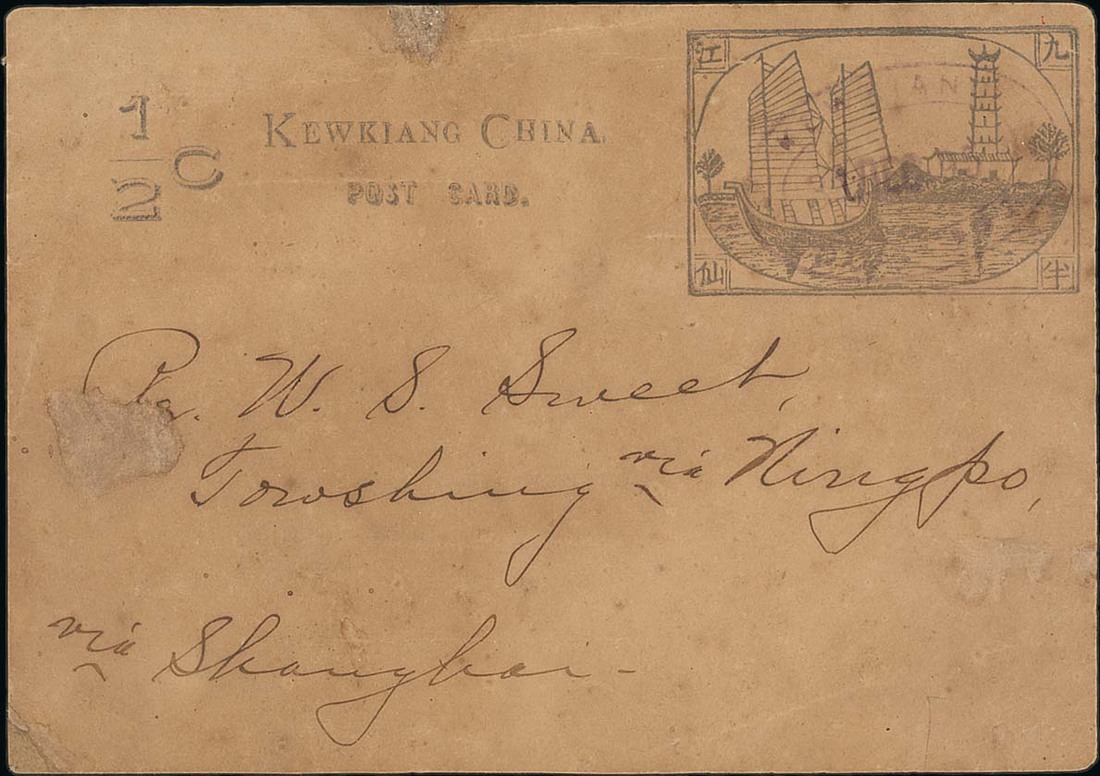 1/2 C
KEWKIANG CHINA.
POST CARD.
江 九
仙 半
W. S. Sweet,
Towshing via Ningpo,
via Shanghai -